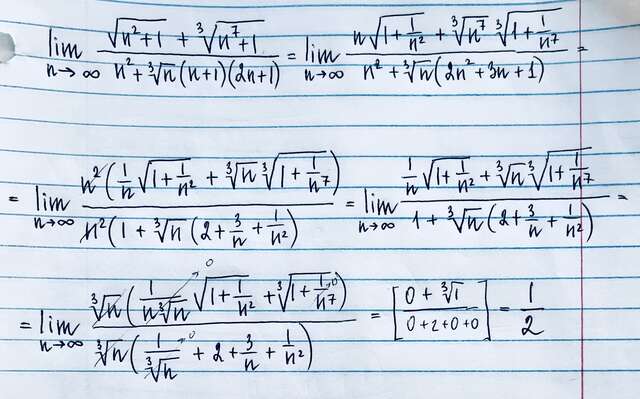 lim n→∞ (√(n²+1) + ∛(n⁷+1)) / (n² + ∛n (n+1)(2n+1)) = lim n→∞ (n√(1+1/n²) + ∛(n⁷) ∛(1+1/n⁷)) / (n² + ∛n (2n²+3n+1)) =
= lim n→∞ n²(1/n √(1+1/n²) + ∛n ∛(1+1/n⁷)) / n²(1 + ∛n (2+3/n+1/n²) = lim n→∞ (1/n √(1+1/n²) + ∛n ∛(1+1/n⁷)) / (1 + ∛n (2+3/n+1/n²)) =
= lim n→∞ ∛n (1/(n∛n) →0 √(1+1/n²) + ∛(1+1/n⁷ →0)) / ∛n (1/∛n →0 + 2 + 3/n + 1/n²) = [(0+∛1)/(0+2+0+0)] = 1/2